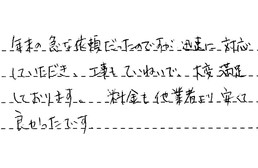 年末の急な依頼だったのですが 迅速に対応
していただき、工事もていねいで、大変満足
しております。 料金も他業者より安くて
良かったです